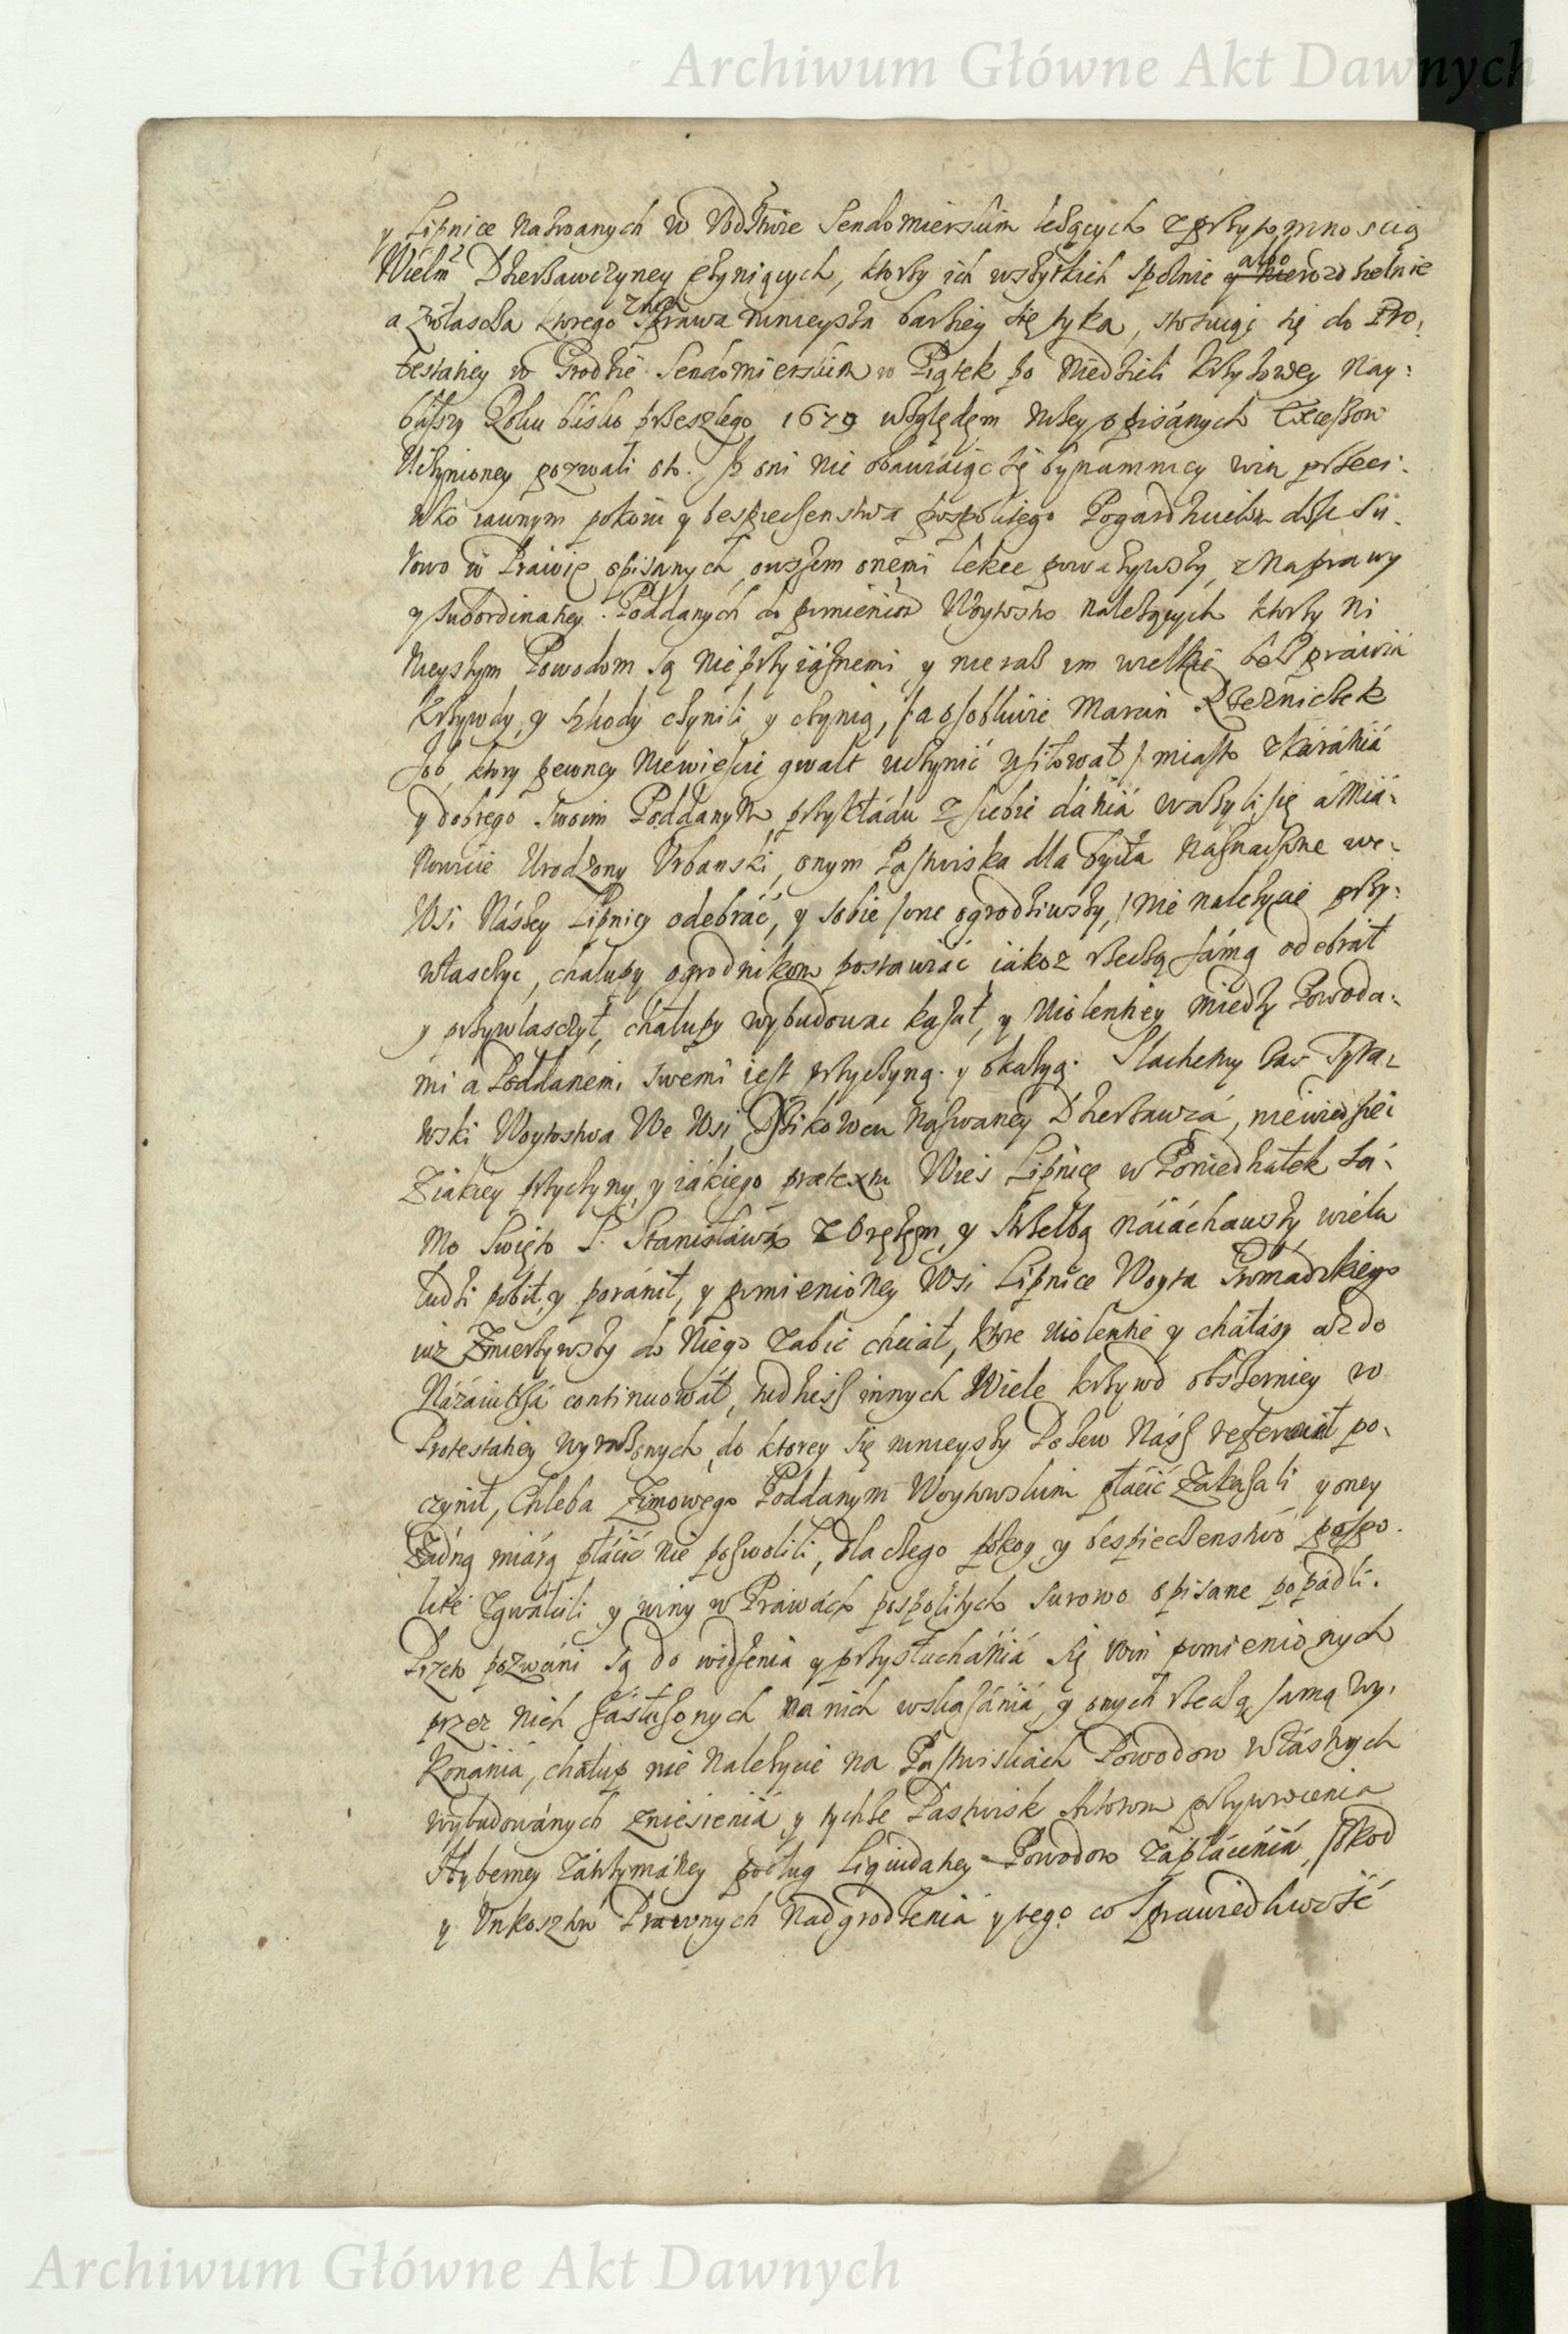 Archiwum Główne Akt Dawnych
y Lipnice nazwanych w Wodztwie Sendomierskim leżących z przytomnoscią
Wielmᶻ Dzerżawczyney czyniących, ktorzy ich wszytkich spolnie albo nierozdzelnie
a zwłascża ktorego z nich sprawa ninieysza barziey się tyka, stosuiąc się do Pro:
testaiey w Grodzie Sendomierskim w Piątek po Niedzieli Krzyżowey Nay:
bliższy Roku blisko przeszłego 1679 względem niżey opisánych Excessow
Uczynioney pozwali oto. Iż oni nie obawiaiąc się bynamniey win przeci:
wko iawnym pokoiu y bespieczenstwa pospolitego Pogardzicielom dosc su:
rowo w Prawie opisanych, owszem onemi lekce poważywszy, z Naprawy
y subordinatiey Poddanych do pomienion Woytostw należących ktorzy ni
nieyszym Powodom są nieprzyiáznemi, y nieraz im wielkie bezprawia
krzywdy y szkody czynili y czynią, / a osobliwie Marcin Rzezniczek
Job, ktory pewney Niewiescie gwałt uczynić usiłował / miasto zkaránia
y dobrego swoim Poddanym przykładu z siebie dánia ważyli się á mia:
nowicie Urodzony Urbanski, onym Pastwiska dla bydła naznaczone we
Wsi Nászey Lipnicy odebráć, y sobie / one ogrodziwszy, / nie należycie przy:
własczyc, chałupy ogrodnikom postawiać iákoz rzeczą sámą odebrał
y przywlasczył, chałupy wybudowac kazał, y violentiey miedzy Powoda:
mi a Poddanemi swemi iest przyczyną y okazyą. Slachetny zas
wski Woytostwa We Wsi Dzikowcu nazwaney Dzerżawcá, niewiedziec
Ziakiey przyczyny, y iákiego praetextu Wies Lipnicę w Poniedziałek sá:
mo Swięto S. Stanisława z Orężem, y Strzelbą náiáchawszy, wielu
ludzi pobił, y poránił, y pomienioney Wsi Lipnice Woyta Gromadzkiego
iuz Zmierzywszy do Niego zabic chciał, ktore violentie y cháłásy az do
Názáiutrz continuowáł, tudziesz innych Wiele krzywd obszerniey w
Protestatiey wyrażonych, do ktorey się ninieyszy Pozew Nász referuie po:
czynił, Chleba Zimowego Poddanym Woytowskim płácić Zakazali y oney
Zádną miárą płácić nie pozwolili, dla czego pokoy y bespieczenstwo pospo:
lite zgwałcili y winy w Práwách pospolitych surowo opisane popádli.
Przeto pozwáni są do widzenia y przysłuchánia się Win pomienionych
przez nich zásłużonych na nich wskazánia, y onych rzeczą samą wy:
konánia, chałup nie Należycie na Pastwiskách Powodow własnych
wybudowánych zniesienia y tychże Pastwisk Aktorom przywrocenia
Hyberney zátrzymáney podług Liquidatiey Powodow Zápłácenia, szkod
y Unkosztow Prawnych Nadgrodzenia y tego co Sprawiedliwość
Archiwum Główne Akt Dawnych